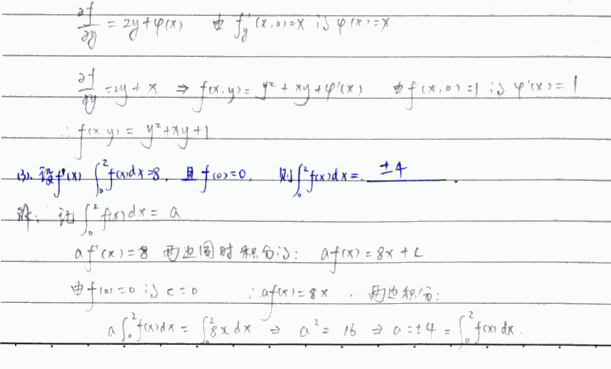 ∂f/∂y = 2y + φ(x) 由 f'y(x,0)=x 得 φ(x)=x
∂f/∂y = 2y + x ⇒ f(x,y) = y² + xy + φ'(x) 由 f(x,0)=1 得 φ'(x)=1
∴ f(x,y) = y² + xy + 1
(3). 设 f'(x) ∫₀² f(x)dx = 8, 且 f(0)=0, 则 ∫₀² f(x)dx = ±4 .
解: 记 ∫₀² f(x)dx = a
a f'(x) = 8 两边同时积分得: a f(x) = 8x + C
由 f(0)=0 得 c=0 ∴ a f(x) = 8x . 两边积分:
a∫₀² f(x)dx = ∫₀² 8x dx ⇒ a² = 16 ⇒ a = ±4 = ∫₀² f(x) dx.